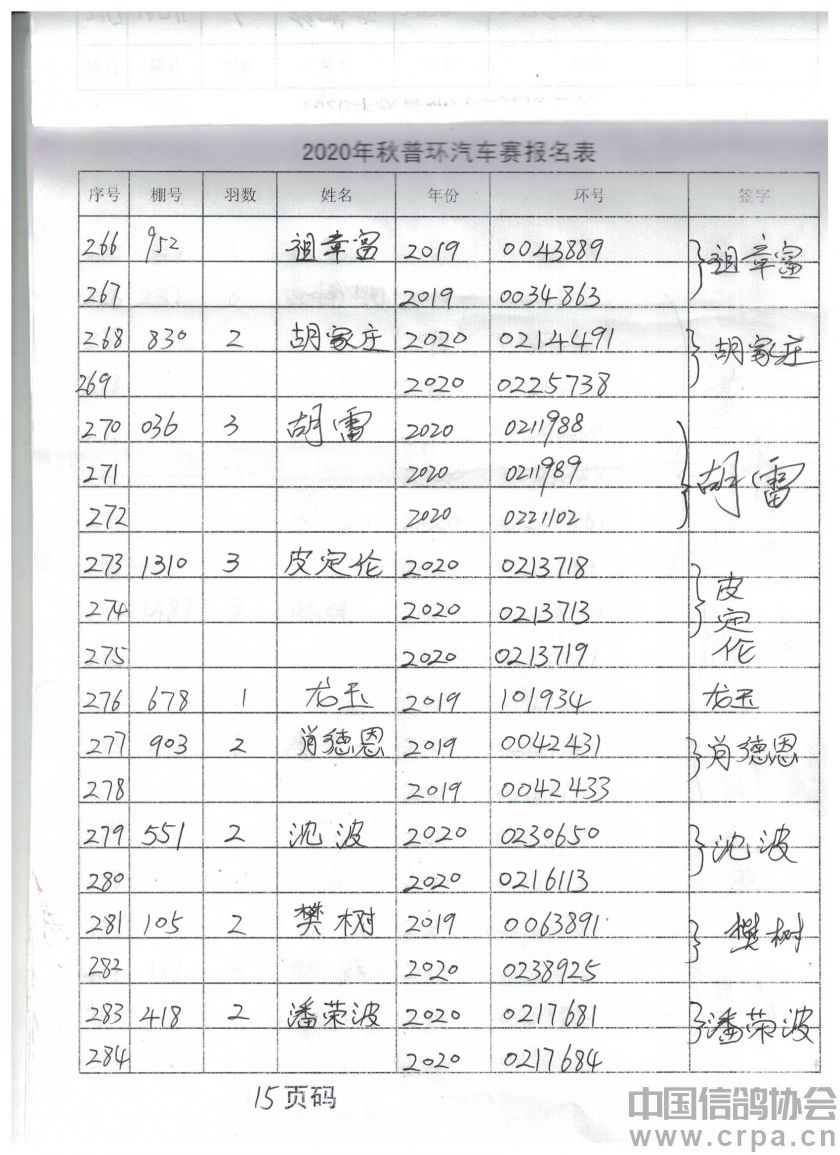 2020年秋普环汽车赛报名表
序号 棚号 羽数 姓名 年份 环号 签字
266 952 祖章富 2019 0043889 祖章富
267 2019 0034863
268 830 2 胡家庄 2020 02144491 胡家庄
269 2020 0225738
270 036 3 胡雷 2020 0211988 胡雷
271 2020 0211989
272 2020 0221102
273 1310 3 皮定伦 2020 0213718 皮定伦
274 2020 0213713
275 2020 0213719
276 678 1 龙玉 2019 101934 龙玉
277 903 2 肖德恩 2019 0042431 肖德恩
278 2019 0042433
279 551 2 沈波 2020 0230650 沈波
280 2020 0216113
281 105 2 樊树 2019 0063891 樊树
282 2020 0238925
283 418 2 潘荣波 2020 0217681 潘荣波
284 2020 0217684
15页码
中国信鸽协会
www.crpa.cn